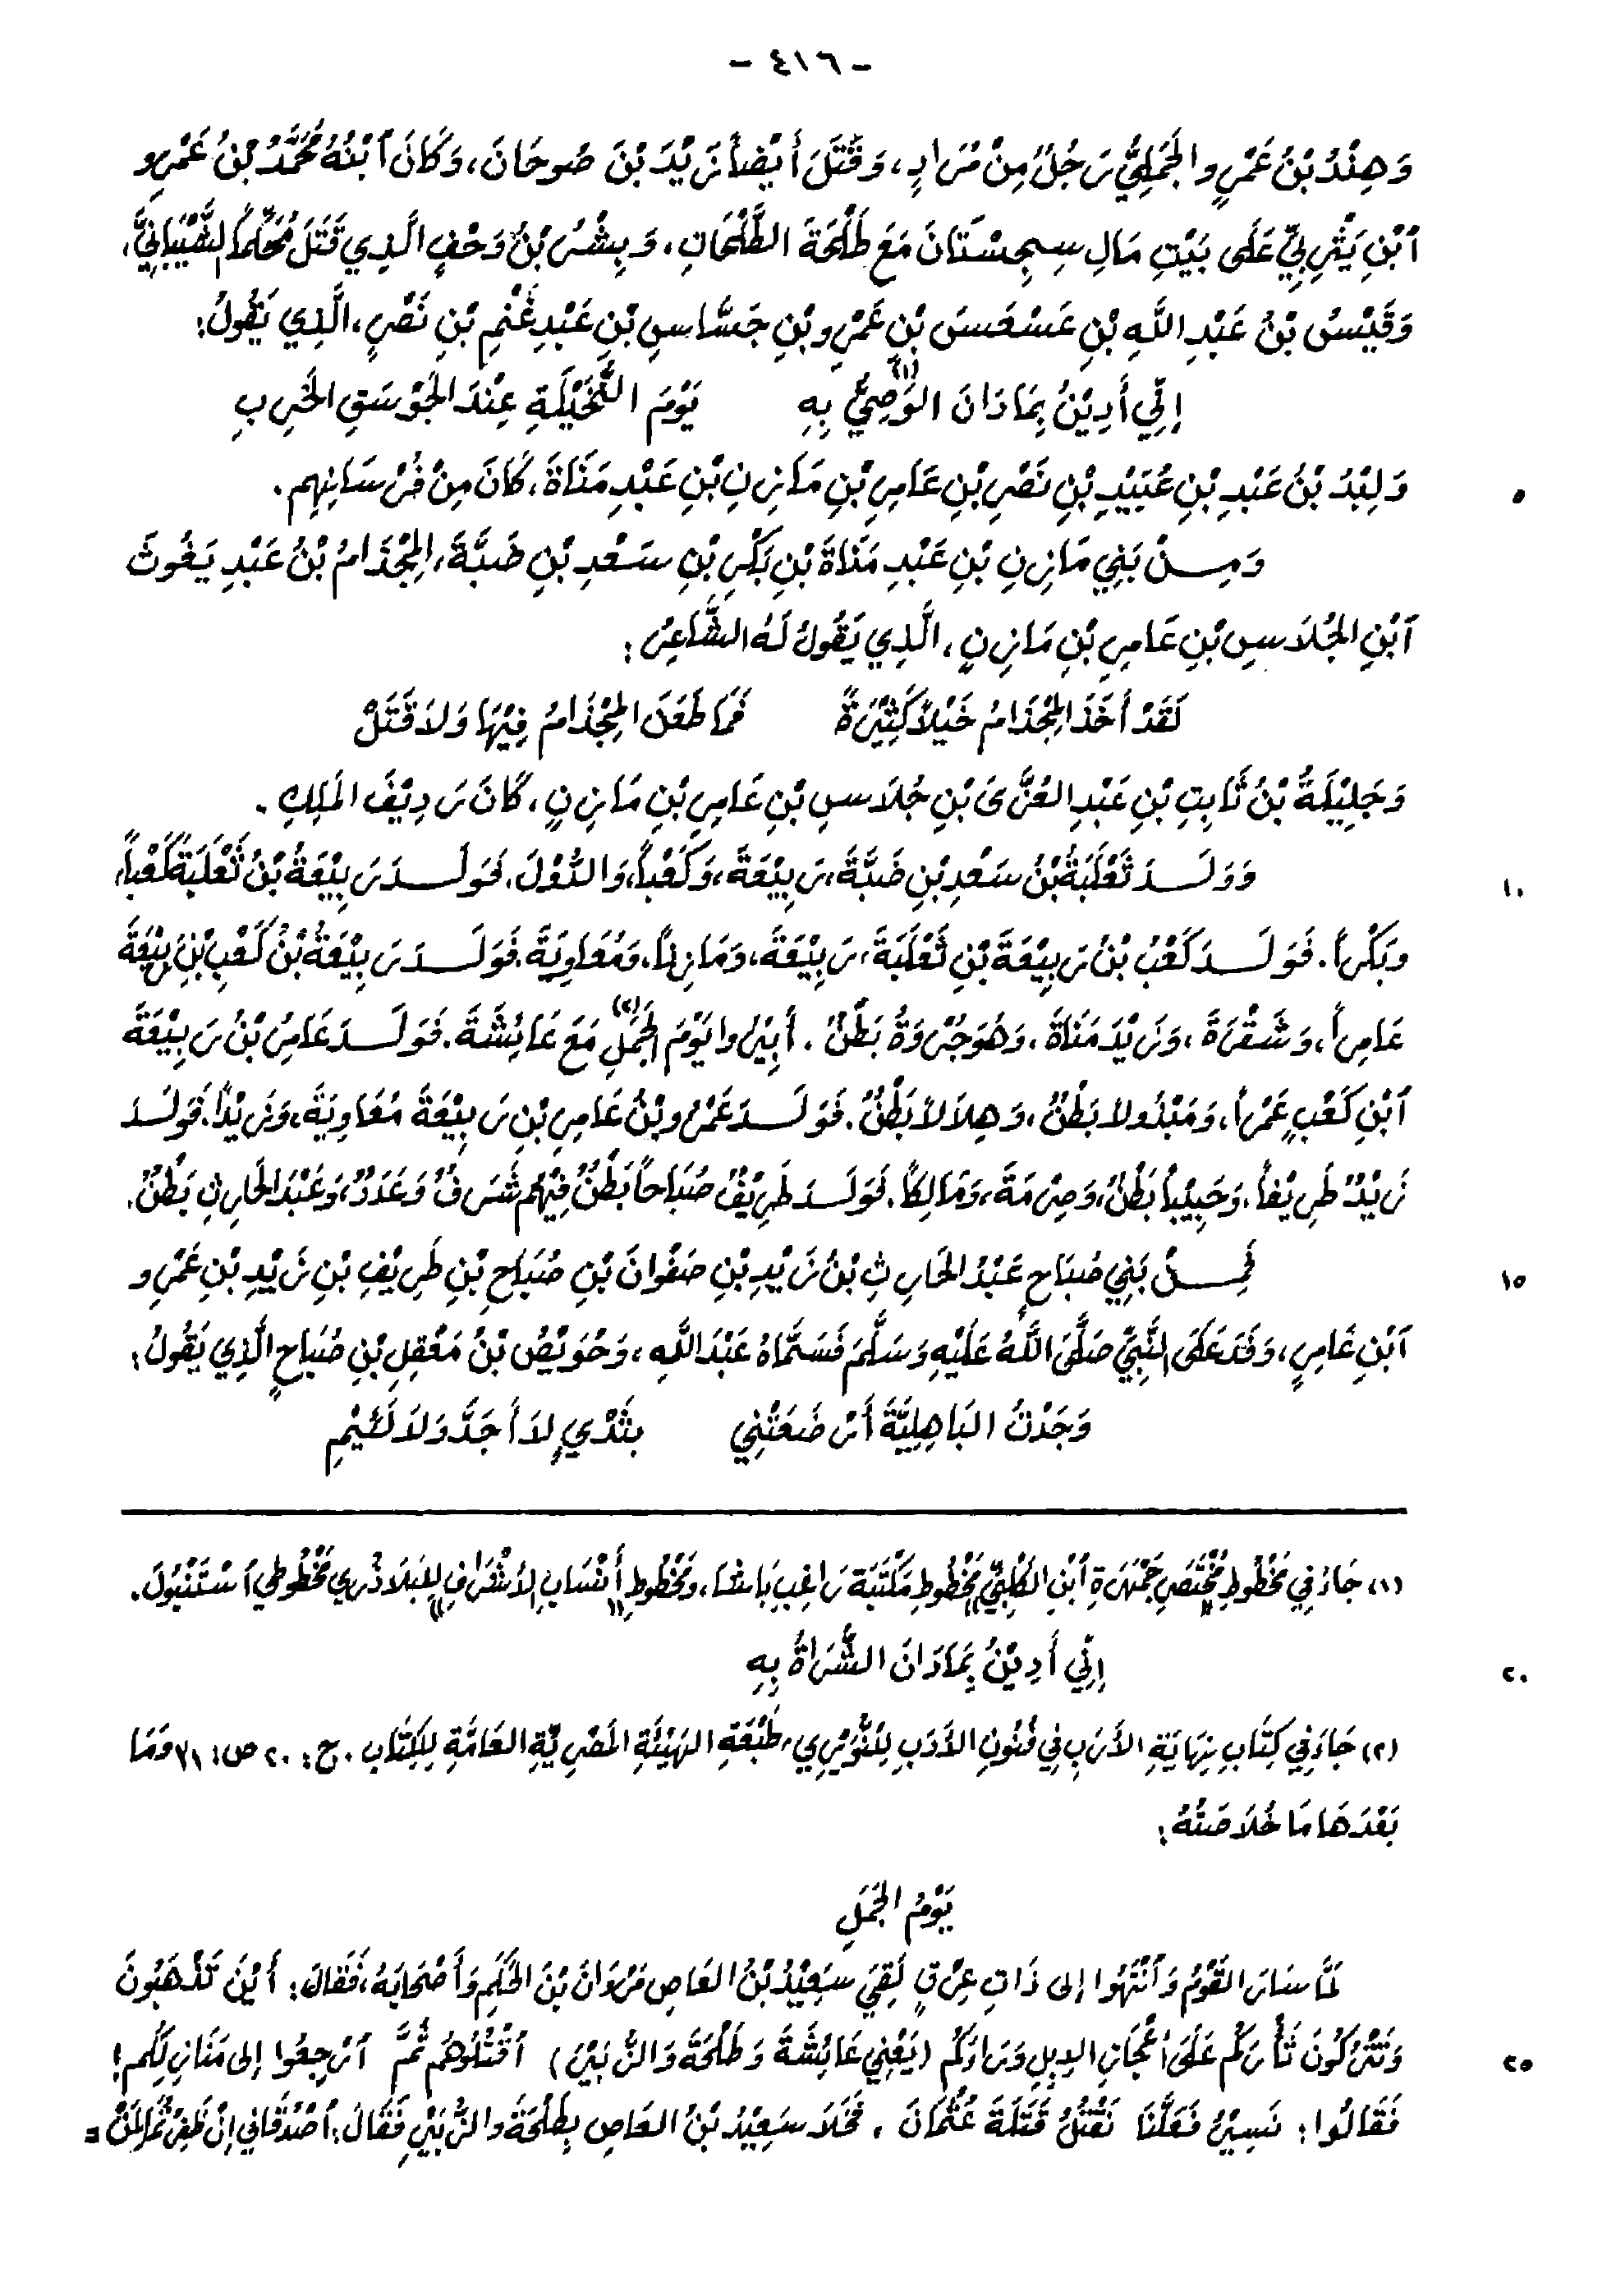 - ٤١٦ -
وَهِنْدُ بْنُ عَمْرٍو الجَمَلِيُّ رَجُلٌ مِنْ مُرَادٍ، وَقَتَلَ أَيْضاً زَيْدَ بْنَ صُوحَانَ، وَكَانَ ٱبْنُهُ مُحَمَّدُ بْنُ عَمْرِو
ٱبْنِ يَثْرِبِيٍّ عَلَى بَيْتِ مَالِ سِجِسْتَانَ مَعَ طَلْحَةَ الطَّلْحَاتِ، وَبِشْرُ بْنُ وَحْفٍ الَّذِي قَتَلَ مُحَكَّماً الشَّيْبَانِيَّ،
وَقَيْسُ بْنُ عَبْدِ اللَّهِ بْنِ عَسْعَسَ بْنِ عَمْرِو بْنِ جَسَّاسِ بْنِ عَبْدِ غَنْمِ بْنِ نَصْرٍ، الَّذِي يَقُولُ:
إِنِّي أَدِيْنُ بِمَا دَانَ الوَصِيُّ بِهِ (١) يَوْمَ النُّخَيْلَةِ عِنْدَ الجَوْسَقِ الخَرِبِ
٥ وَلِبْدُ بْنُ عَبْدِ بْنِ عُبَيْدِ بْنِ نَصْرِ بْنِ عَامِرِ بْنِ مَازِنِ بْنِ عَبْدِ مَنَاةَ، كَانَ مِنْ فُرْسَانِهِم.
وَمِنْ بَنِي مَازِنِ بْنِ عَبْدِ مَنَاةَ بْنِ بَكْرِ بْنِ سَعْدِ بْنِ ضَبَّةَ، المِجْذَامُ بْنُ عَبْدِ يَغُوثَ
ٱبْنِ الجُلَاسِ بْنِ عَامِرِ بْنِ مَازِنٍ، الَّذِي يَقُولُ لَهُ الشَّاعِرُ:
لَقَدْ أَخَذَ المِجْذَامُ خَيْلاً كَثِيْرَةً فَمَا طَعَنَ المِجْذَامُ فِيْهَا وَلاَ قَتَلْ
وَجَلِيْلَةُ بْنُ ثَابِتِ بْنِ عَبْدِ العُزَّى بْنِ جُلَاسِ بْنِ عَامِرِ بْنِ مَازِنٍ، كَانَ رَدِيْفَ المَلِكِ.
١٠ وَوَلَدَ ثَعْلَبَةُ بْنُ سَعْدِ بْنِ ضَبَّةَ، رَبِيْعَةَ، وَكَعْباً، وَالدُّوْلَ. فَوَلَدَ رَبِيْعَةُ بْنُ ثَعْلَبَةَ كَعْباً،
وبَكْراً. فَوَلَدَ كَعْبُ بْنُ رَبِيْعَةَ بْنِ ثَعْلَبَةَ، رَبِيْعَةَ، وَمَازِناً، وَمُعَاوِيَةَ. فَوَلَدَ رَبِيْعَةُ بْنُ كَعْبِ بْنِ رَبِيْعَةَ
عَامِراً، وَشَقْرَةَ، وَزَيْدَ مَنَاةَ، وَهُوَ جُرْوَةُ بَطْنٌ. أُبِيْرُوا يَوْمَ الجَمَلِ (٢) مَعَ عَائِشَةَ. فَوَلَدَ عَامِرُ بْنُ رَبِيْعَةَ
ٱبْنِ كَعْبٍ عَمْراً، وَمَبْذُولا بَطْنٌ، وَهِلاَلاً بَطْنٌ. فَوَلَدَ عَمْرُو بْنُ عَامِرِ بْنِ رَبِيْعَةَ مُعَاوِيَةَ، وَزَيْداً. فَوَلَدَ
زَيْدٌ طَرِيْفاً، وَحَبِيْباً بَطْنٌ، وَصِرْمَةَ، وَمَالِكاً. فَوَلَدَ طَرِيْفٌ صُبَاحاً بَطْنٌ فِيْهِم شَرَفٌ وَعَدَدٌ، وَعَبْدَ الحَارِثِ بَطْنٌ.
١٥ فَمِنْ بَنِي صُبَاحٍ عَبْدُ الحَارِثِ بْنُ زَيْدِ بْنِ صَفْوَانَ بْنِ صُبَاحِ بْنِ طَرِيْفِ بْنِ زَيْدِ بْنِ عَمْرِو
ٱبْنِ عَامِرٍ، وَفَدَ عَلَى النَّبِيِّ صَلَّى اللَّهُ عَلَيْهِ وَسَلَّمَ فَسَمَّاهُ عَبْدَ اللَّهِ، وَحُوَيْصُ بْنُ مَعْقِلِ بْنِ صُبَاحٍ الَّذِي يَقُولُ:
وَجَدْتُ البَاهِلِيَّةَ أَرْضَعَتْنِي بِثَدْيٍ لاَ أَجَدَّ وَلاَ لَئِيْمِ
(١) جَاءَ فِي مَخْطُوطِ مُخْتَصَرِ جَمْهَرَةِ ٱبْنِ الكَلْبِيِّ مَخْطُوطِ مَكْتَبَةِ رَاغِبِ بَاشَا، وَمَخْطُوطِ أَنْسَابِ الأَشْرَافِ لِلبَلَاذُرِي مَخْطُوطِ ٱسْتَنْبُولَ.
٢٠ إِنِّي أَدِيْنُ بِمَا دَانَ الشُّرَاةُ بِهِ
(٢) جَاءَ فِي كِتَابِ نِهَايَةِ الأَرَبِ فِي فُنُونِ الأَدَبِ لِلنُّوَيْرِي، طَبْعَةِ الهَيْئَةِ المَصْرِيَّةِ العَامَّةِ لِلكِتَابِ. ج: ٢٠ ص: ٣١ وَمَا
بَعْدَهَا مَا خُلَاصَتُهُ:
يَوْمُ الجَمَلِ
لَمَّا سَارَ القَوْمُ وَٱنْتَهُوا إلى ذَاتِ عِرْقٍ لَقِيَ سَعِيْدُ بْنُ العَاصِ مَرْوَانَ بْنَ الحَكَمِ وَأَصْحَابَهُ، فَقَالَ: أَيْنَ تَذْهَبُونَ
٢٥ وَتَتْرُكُونَ ثَأْرَكُم عَلَى أَعْجَازِ الإِبِلِ وَرَاءَكُم (يَعْنِي عَائِشَةَ وَطَلْحَةَ وَالزُّبَيْرَ) ٱقْتُلُوهُم ثُمَّ ٱرْجِعُوا إلى مَنَازِلِكُم!
فَقَالُوا: نَسِيْرُ فَعَلَّنَا نَقْتُلُ قَتَلَةَ عُثْمَانَ، فَخَلَا سَعِيْدُ بْنُ العَاصِ بِطَلْحَةَ والزُّبَيْرِ فَقَالَ: أَصْدُقَانِي إِنْ ظَفِرْتُمَا لِمَنْ =